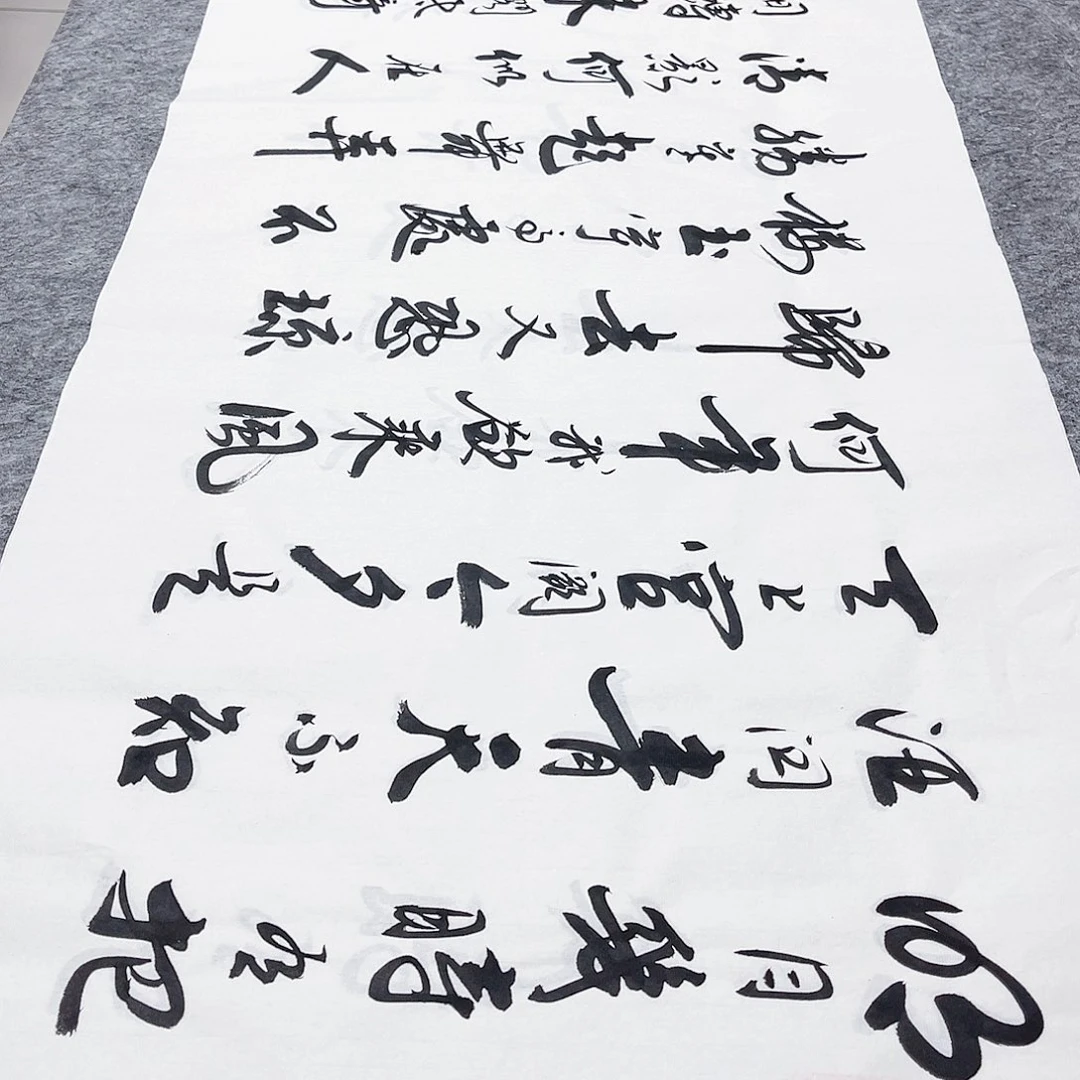 明月幾時有把
酒问青天不知
天上宮闕今夕是
何年我欲乘風
歸去又恐瓊
樓玉宇高處不
勝寒起舞弄
清影何似在人
间轉朱閣低綺